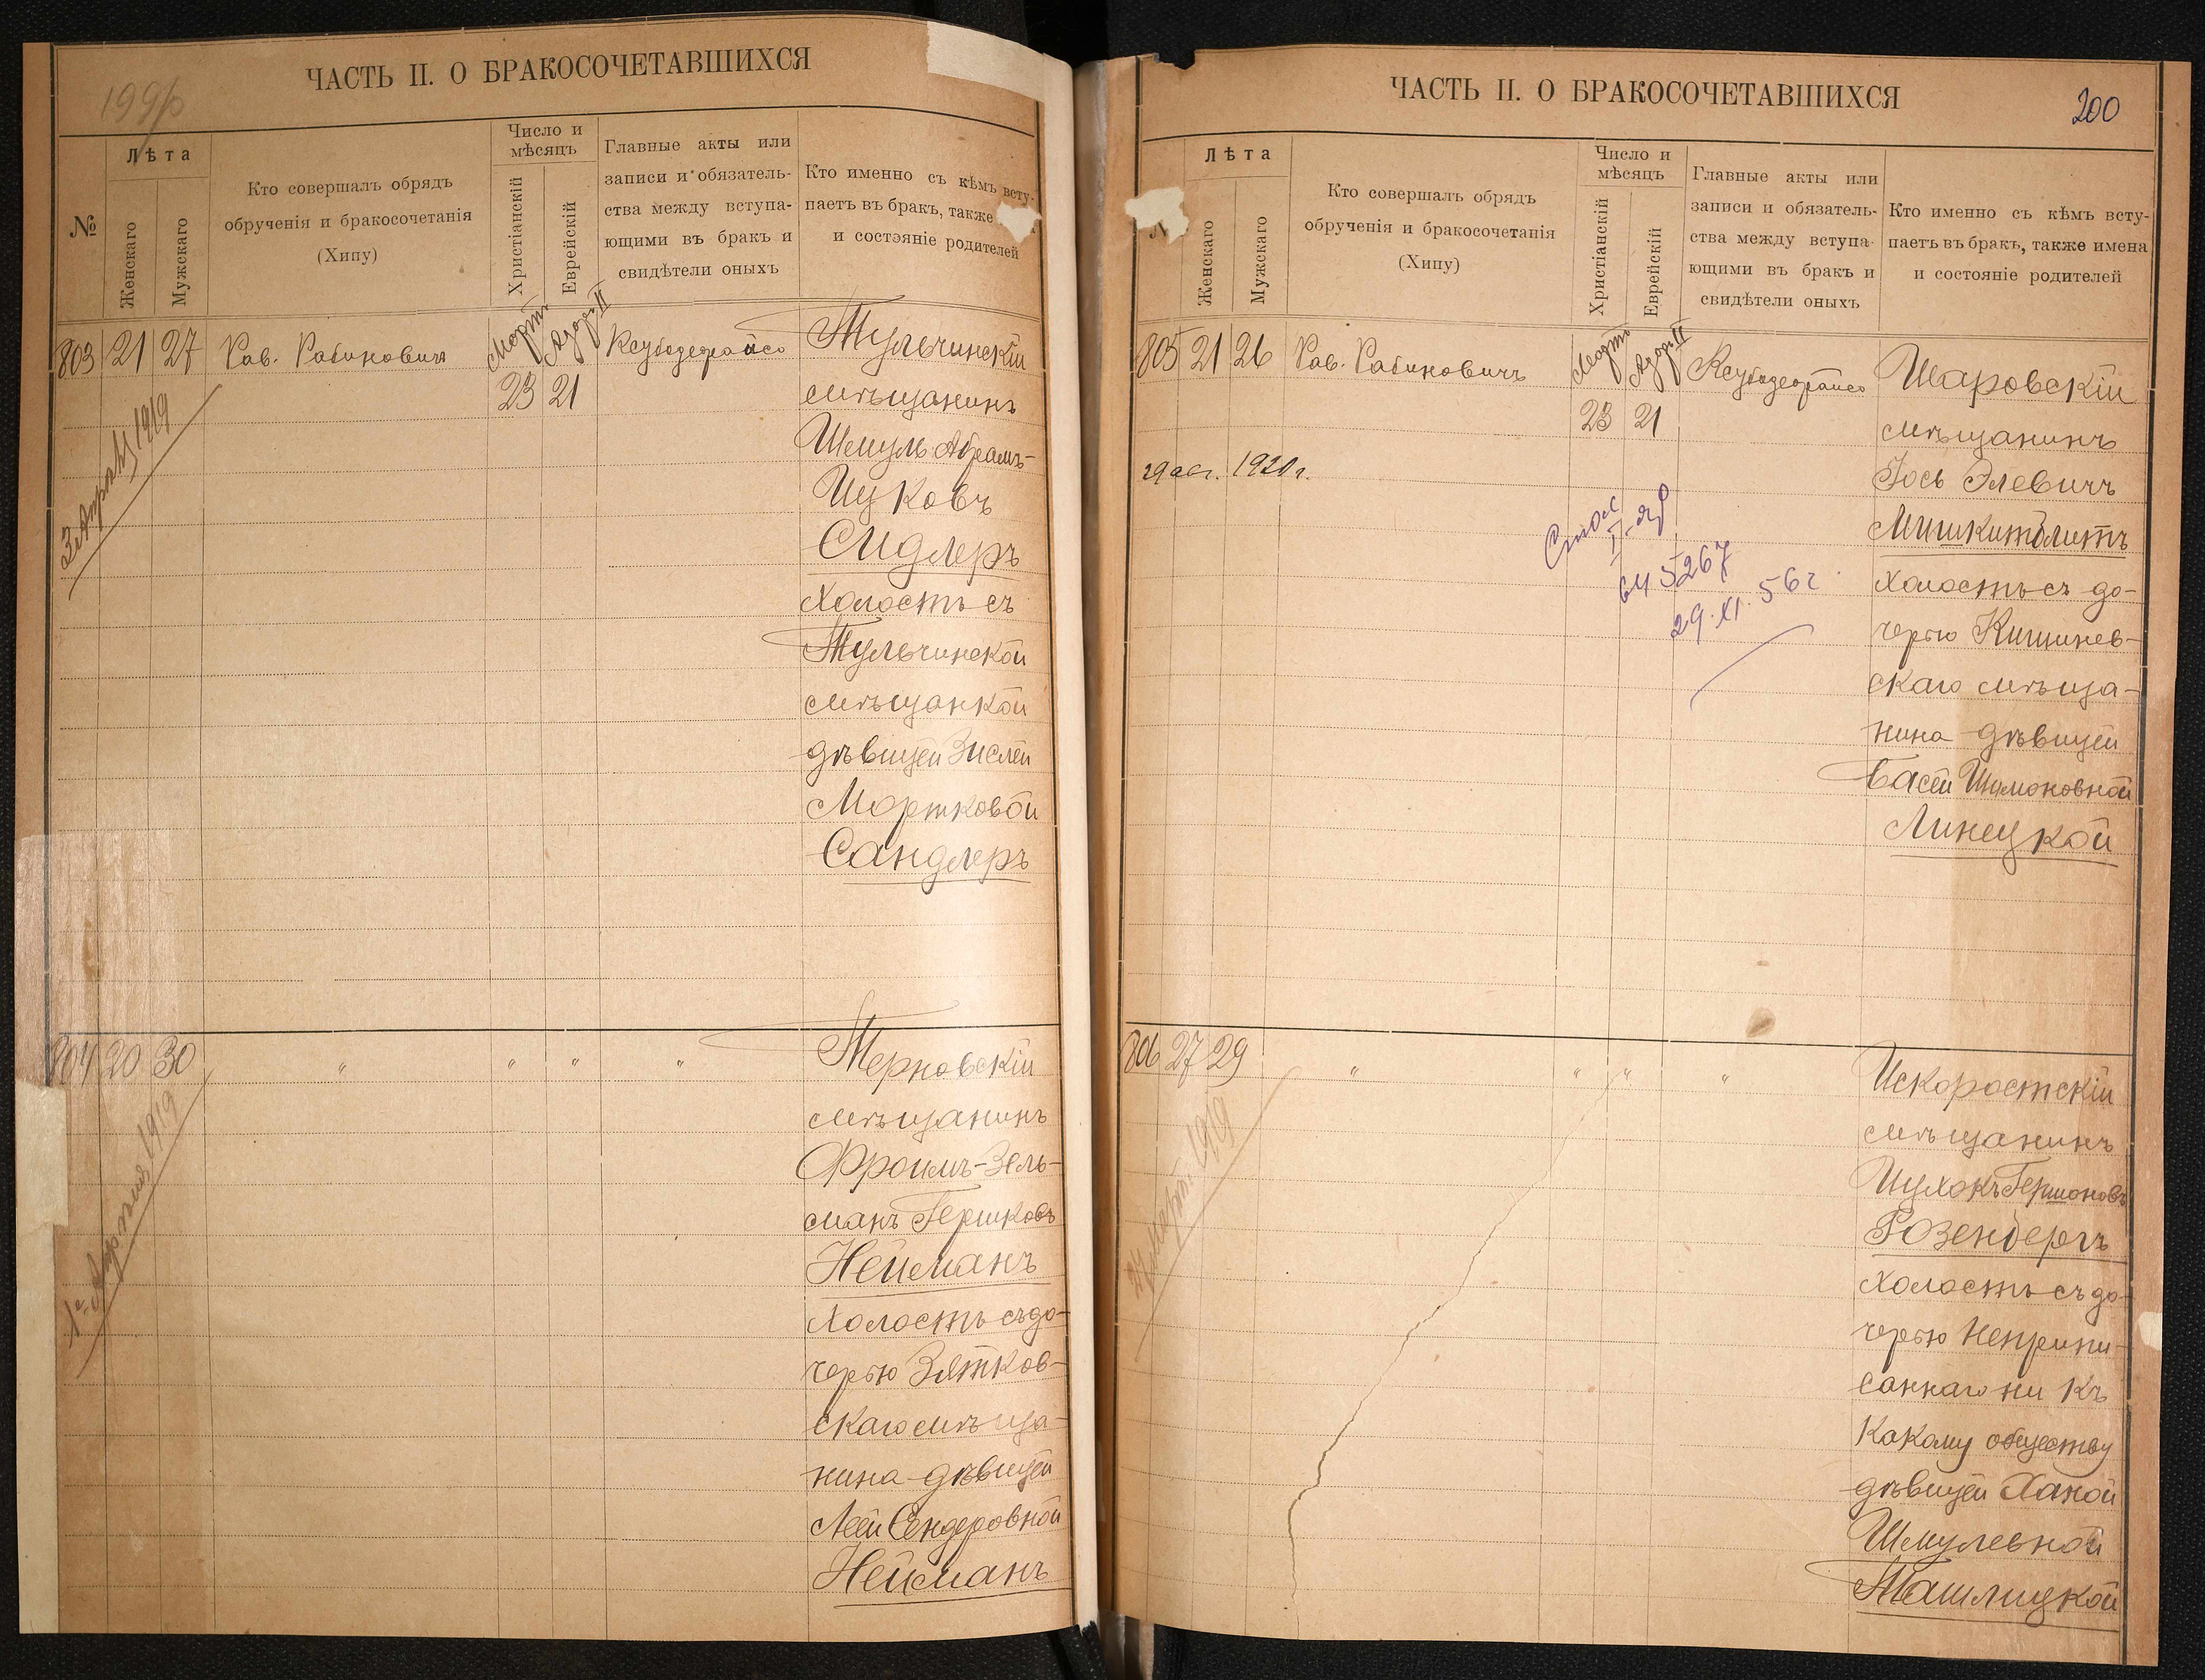 199б
ЧАСТЬ II. О БРАКОСОЧЕТАВШИХСЯ
№
Лѣта
Женскаго
Мужскаго
Кто совершалъ обрядъ
обрученія и бракосочетанія
(Хипу)
Число и
мѣсяцъ
Христіанскій
Еврейскій
Главные акты или
записи и обязатель-
ства между вступа-
ющими въ бракъ и
свидѣтели оныхъ
Кто именно съ кѣмъ всту-
паетъ въ бракъ, также
и состояніе родителей
803 21 27 Рав. Рабиновичъ
Мартъ Адаръ II
23 21
3 Апрѣля 1919
Тульчинскій
мѣщанинъ
Шмуль Абрамъ-
Ицковъ
Сидлеръ
холостъ съ
Тульчинской
мѣщанкой
дѣвицей Зислей
Мортковой
Сандлеръ
804 20 30 " " " "
1919
Терновскій
мѣщанинъ
Фроимъ-Зель-
манъ Гершковъ
Нейманъ
холостъ съ до-
черью Зятков-
скаго мѣща-
нина дѣвицей
Леей Сендеровной
Нейманъ
ЧАСТЬ II. О БРАКОСОЧЕТАВШИХСЯ
200
Лѣта
Женскаго
Мужскаго
Кто совершалъ обрядъ
обрученія и бракосочетанія
(Хипу)
Число и
мѣсяцъ
Христіанскій
Еврейскій
Главные акты или
записи и обязатель-
ства между вступа-
ющими въ бракъ и
свидѣтели оныхъ
Кто именно съ кѣмъ всту-
паетъ въ бракъ, также имена
и состояніе родителей
805 21 26 Рав. Рабиновичъ
Мартъ Адаръ II
23 21
29 авг. 1920 г.
645267
29.XI.56г.
Шаровскій
мѣщанинъ
Іось Элевичъ
Мишкитблитъ
холостъ съ до-
черью Кишинев-
скаго мѣща-
нина дѣвицей
Басей Шимоновной
Линецкой
806 27 29 " " " "
1919
Искоростскій
мѣщанинъ
Ицхокъ Гершоновъ
Розенбергъ
холостъ съ до-
черью неприпи-
саннаго ни къ
какому обществу
дѣвицей Ханой
Шмулевной
Ташлицкой